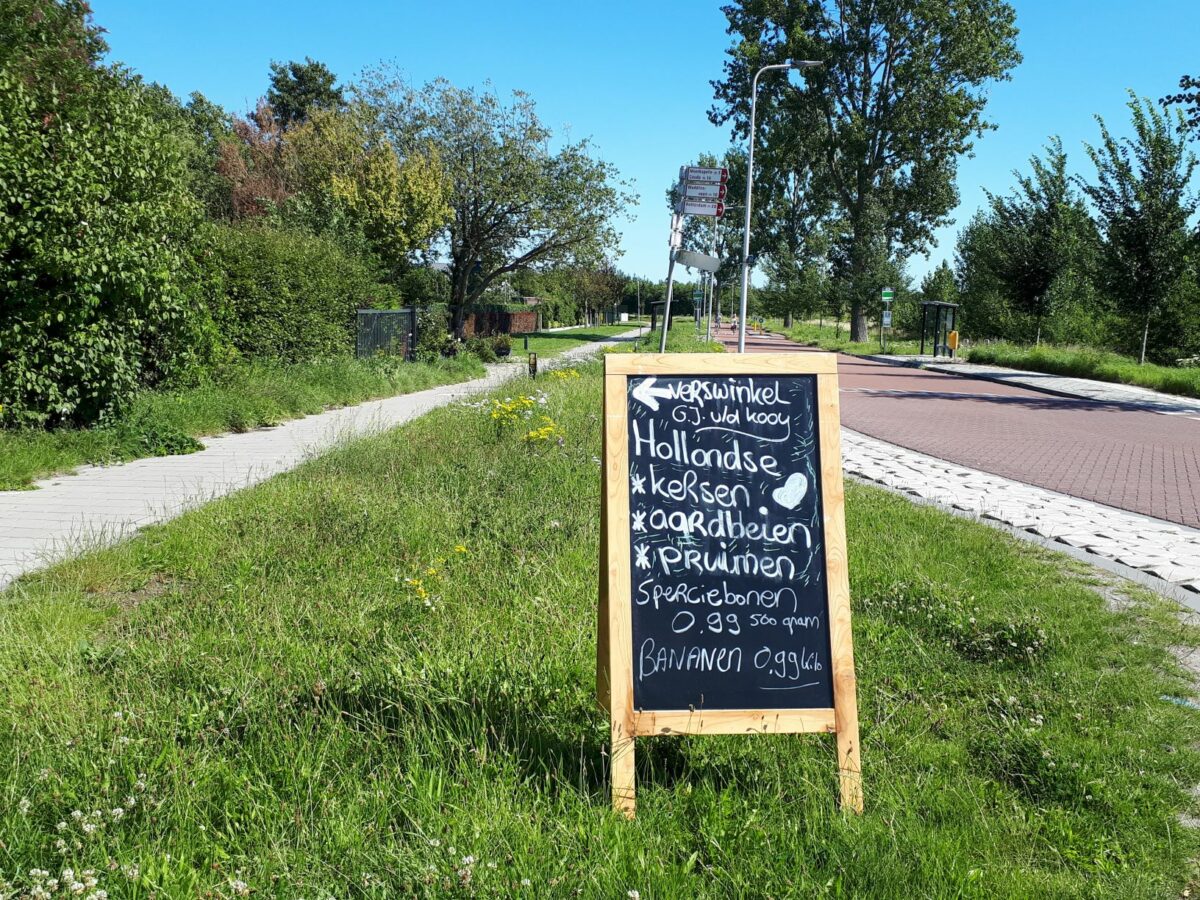 Moerkapelle
Gouda
Rotterdam
← verswinkel
G.J. v/d kooy
Hollandse
* kersen
* aardbeien
* pruimen
Sperciebonen
0.99 500 gram
BANANEN 0,99 kilo